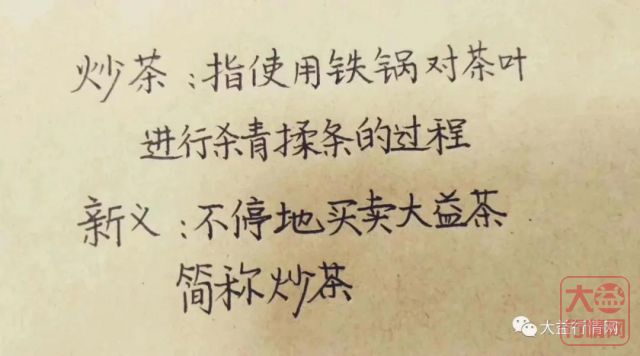 炒茶：指使用铁锅对茶叶
进行杀青揉条的过程
新义：不停地买卖大益茶
简称炒茶
大益
行情网
大益行情网